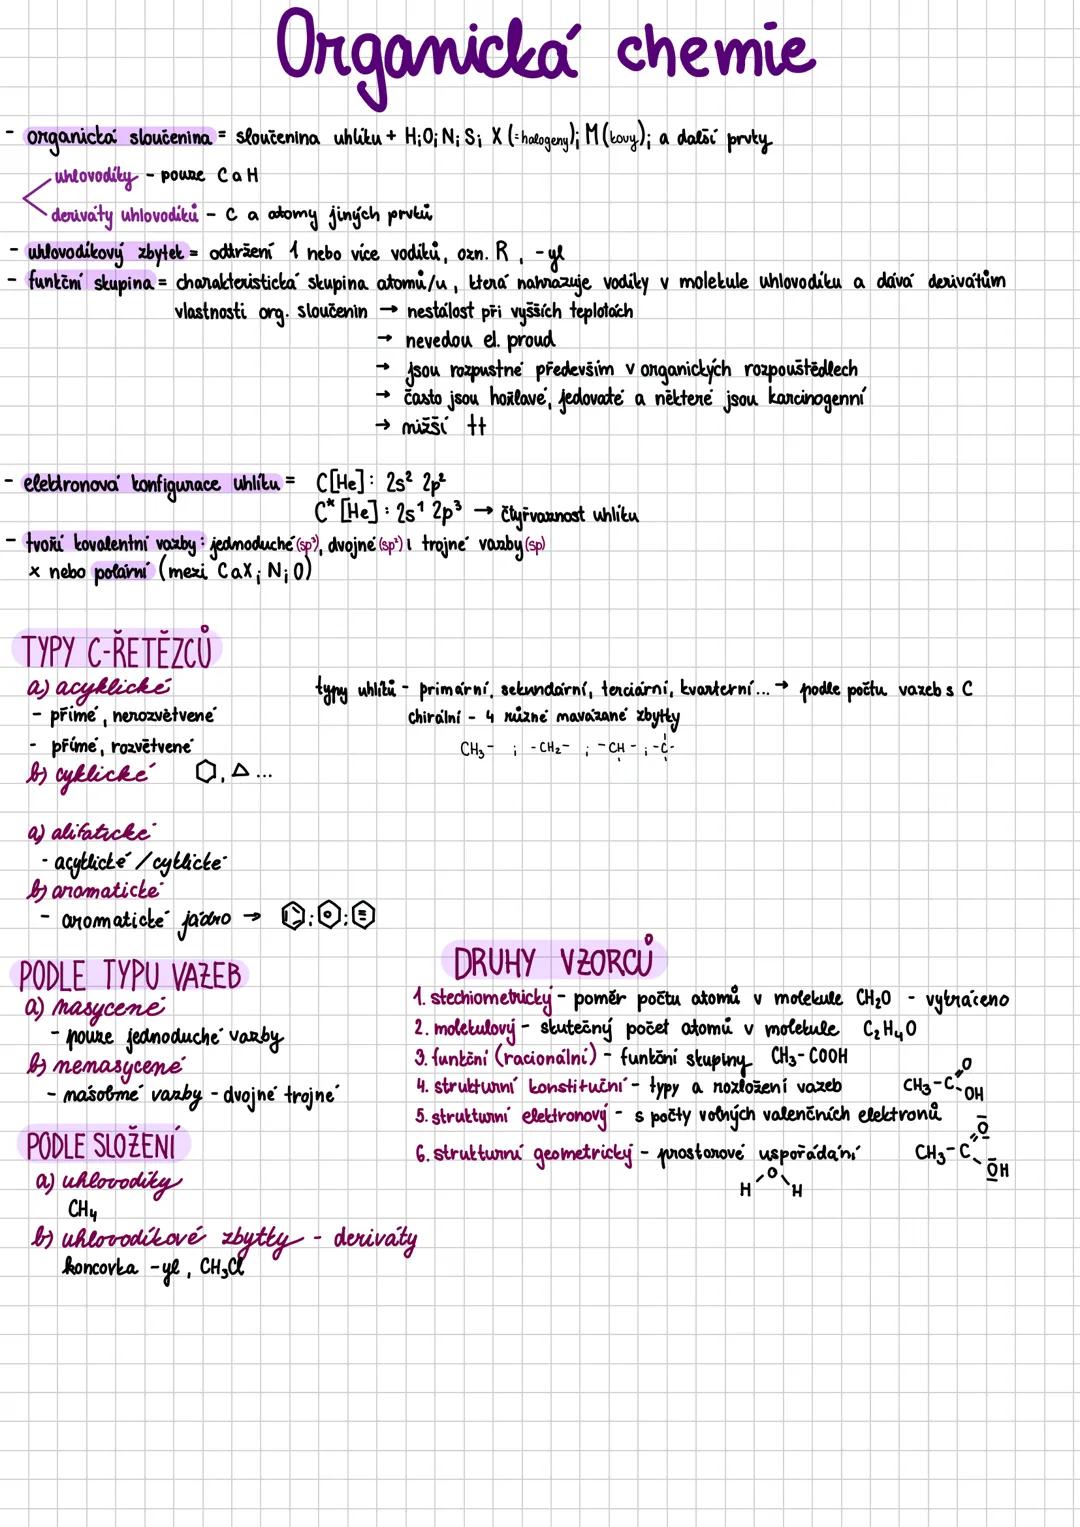 Organická chemie
- organická sloučenina = sloučenina uhlíku + H; O; N; S; X (=halogeny); M (kovy); a další prvky
uhlovodíky - pouze C a H
deriváty uhlovodíků - C a atomy jiných prvků
- uhlovodíkový zbytek = odtržení 1 nebo více vodíků, ozn. R, -yl
- funkční skupina = charakteristická skupina atomů/u, která nahrazuje vodíky v molekule uhlovodíku a dává derivátům
vlastnosti org. sloučenin → nestálost při vyšších teplotách
→ nevedou el. proud
→ jsou rozpustné především v organických rozpouštědlech
→ často jsou hořlavé, jedovaté a některé jsou karcinogenní
→ nižší tt
- elektronová konfigurace uhlíku = C[He]: 2s² 2p²
C* [He]: 2s¹ 2p³ → čtyřvaznost uhlíku
- tvoří kovalentní vazby: jednoduché (sp³), dvojné (sp²) i trojné vazby (sp)
x nebo polární (mezi C a X; N; O)
TYPY C-ŘETĚZCŮ
a) acyklické
- přímé, nerozvětvené
- přímé, rozvětvené
b) cyklické ...
typy uhlíků - primární, sekundární, terciární, kvarterní... → podle počtu vazeb s C
chirální - 4 různé navázané zbytky
CH₃- ; -CH₂- ; -CH- ; -C-
a) alifatické
- acyklické / cyklické
b) aromatické
- aromatické jádro →
PODLE TYPU VAZEB
a) nasycené
- pouze jednoduché vazby
b) nenasycené
- násobné vazby - dvojné trojné
PODLE SLOŽENÍ
a) uhlovodíky
CH₄
b) uhlovodíkové zbytky - deriváty
koncovka -yl, CH₃Cl
DRUHY VZORCŮ
1. stechiometrický - poměr počtu atomů v molekule CH₂O - vykráceno
2. molekulový - skutečný počet atomů v molekule C₂H₄O
3. funkční (racionální) - funkční skupiny CH₃-COOH
4. strukturní konstituční - typy a rozložení vazeb CH₃-C O OH
5. strukturní elektronový - s počty volných valenčních elektronů
CH₃-C O OH
6. strukturní geometrický - prostorové uspořádání
H O H